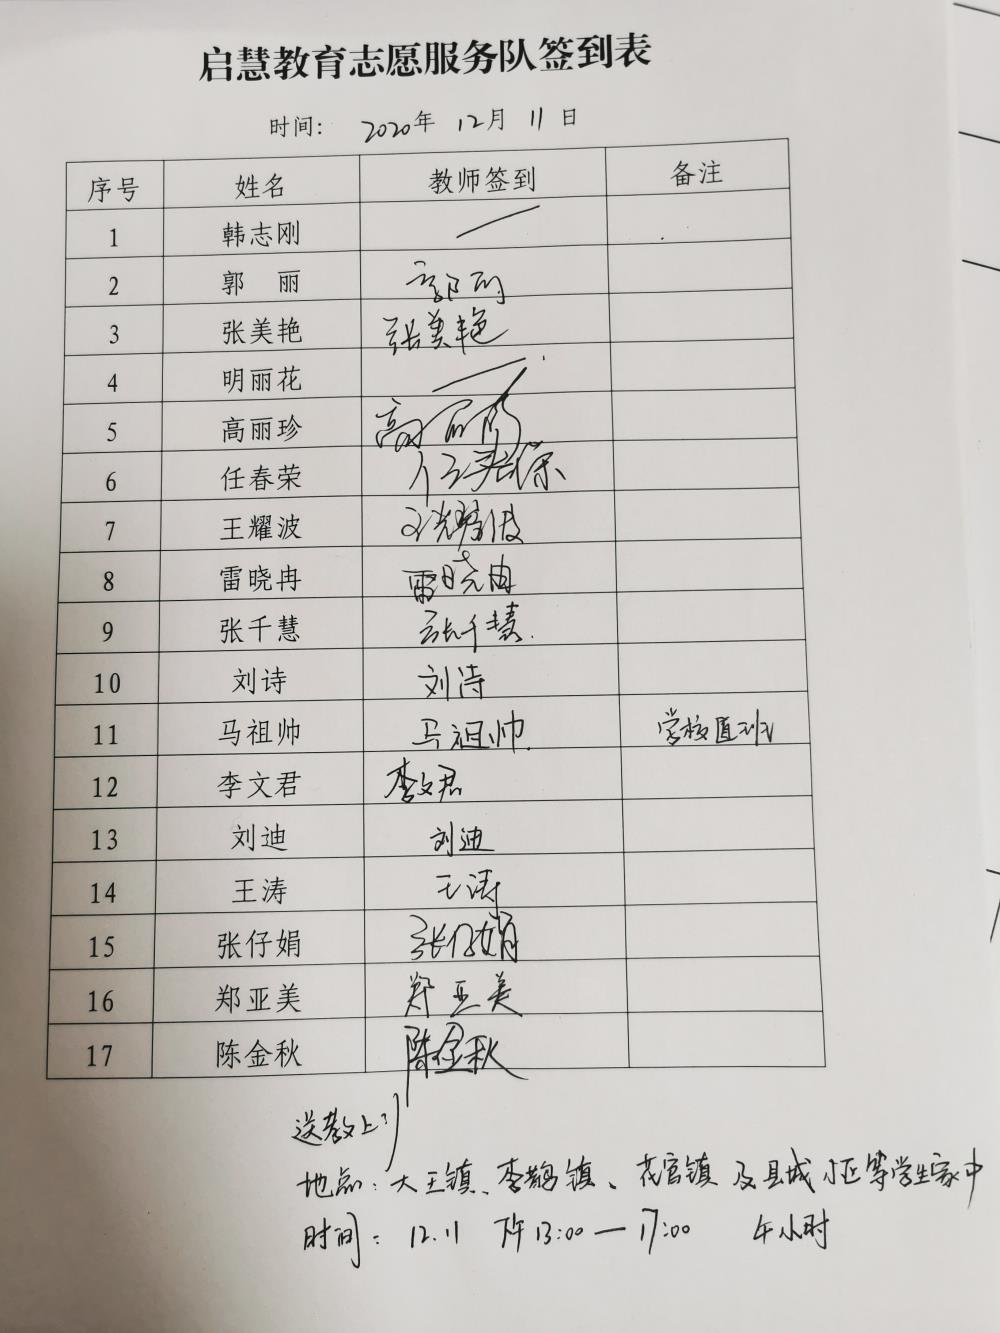 启慧教育志愿服务队签到表
时间： 2020年 12月 11日
序号 姓名 教师签到 备注
1 韩志刚
2 郭 丽 郭丽
3 张美艳 张美艳
4 明丽花
5 高丽珍 高丽珍
6 任春荣 任春荣
7 王耀波 王耀波
8 雷晓冉 雷晓冉
9 张千慧 张千慧.
10 刘诗 刘诗
11 马祖帅 马祖帅. 学校值班
12 李文君 李文君
13 刘迪 刘迪
14 王涛 王涛
15 张仔娟 张仔娟
16 郑亚美 郑亚美
17 陈金秋 陈金秋
送教上门
地点：大王镇、李鹊镇、花官镇及县城小区等学生家中
时间：12.11 下午13:00—17:00 4小时